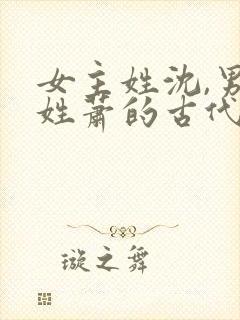 女主姓沈,男
姓萧的古代
璇之舞